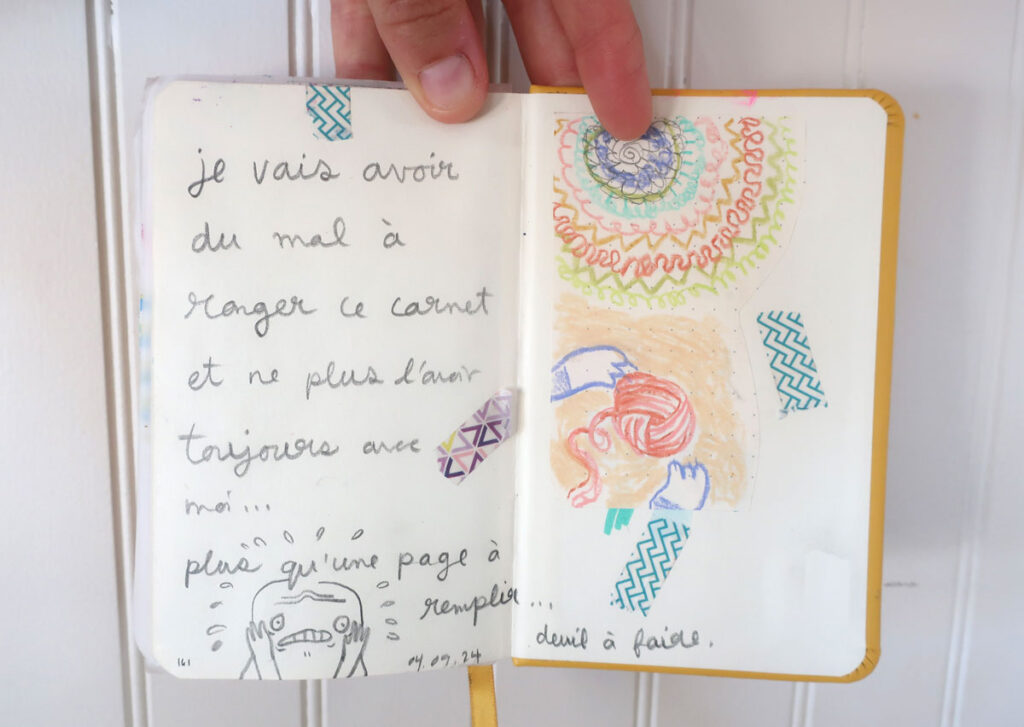 je vais avoir
du mal à
ranger ce carnet
et ne plus l'avoir
toujours avec
moi...
plus qu'une page à
remplir...
deuil à faide.
161
04.09.24